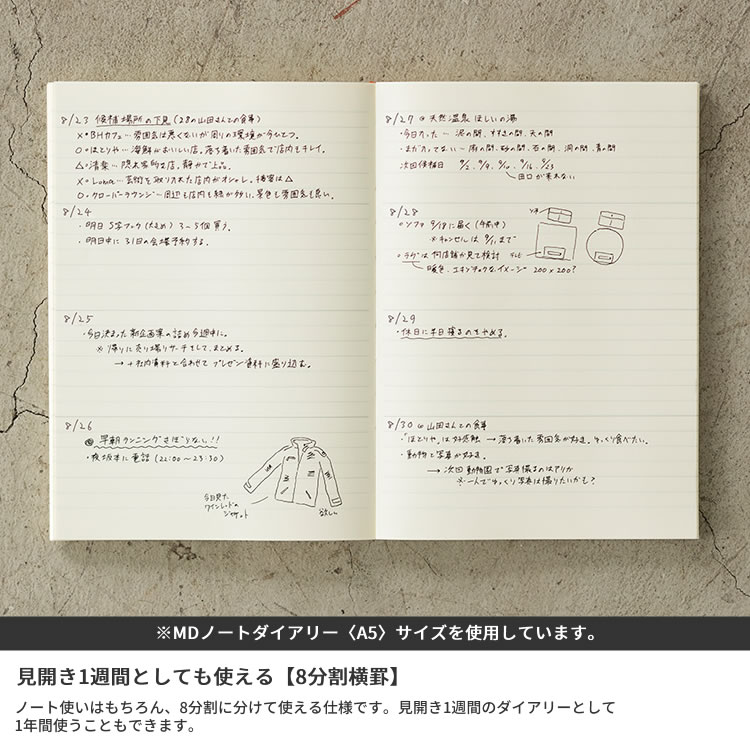 8/23 候補場所の下見(28の山田さんとの食事)
×・BHカフェ…雰囲気は悪くないが周りの環境が今ひとつ。
○・ほとりや…海鮮がおいしい店。落ち着いた雰囲気で店内もキレイ。
△・清楽…隠れ家的な店。静かで上品。
×・Lohca…芸術を取り入れた店内がオシャレ。接客は△
○・クローバーラウンジ…周辺も店内も緑が多い。景色も雰囲気も良い。
8/24
・明日 S字フック(大きめ) 3〜5個買う。
・明日中に31日の会場予約する。
8/25
・今日決まった新企画案の詰め今週中に。
※帰りに売り場リサーチをして、まとめる。
→+社内資料と合わせてプレゼン資料に盛り込む。
8/26
早朝ランニングさぼりなし!!
・夜坂本に電話(22:00〜23:30)
今日見た
ワインレッドの
ジャケット
欲しい
8/27 @天然温泉 ほしいの湯
・今日入った…泥の間、すすきの間、天の間
・まだ入ってない…雨の間、砂の間、石の間、洞の間、青の間
次回候補日 9/2、9/9、9/10、9/16、9/23
田口が来れない
8/28
○ソファ 9/18に届く(午前中)
※キャンセルは9/11まで
○ラグは何店舗か見て検討
暖色、エキゾチックなイメージ 200×200?
ソファ
テレビ
8/29
・休日に半日寝るのをやめる。
8/30 @山田さんとの食事
・「ほとりや」は好感触 → 落ち着いた雰囲気が好き。ゆっくり食べたい。
・動物と写真が好き。
→次回動物園で写真撮るのはアリか
※一人でゆっくり写真は撮りたいかも?
※MDノートダイアリー〈A5〉サイズを使用しています。
見開き1週間としても使える【8分割横罫】
ノート使いはもちろん、8分割に分けて使える仕様です。見開き1週間のダイアリーとして
1年間使うこともできます。